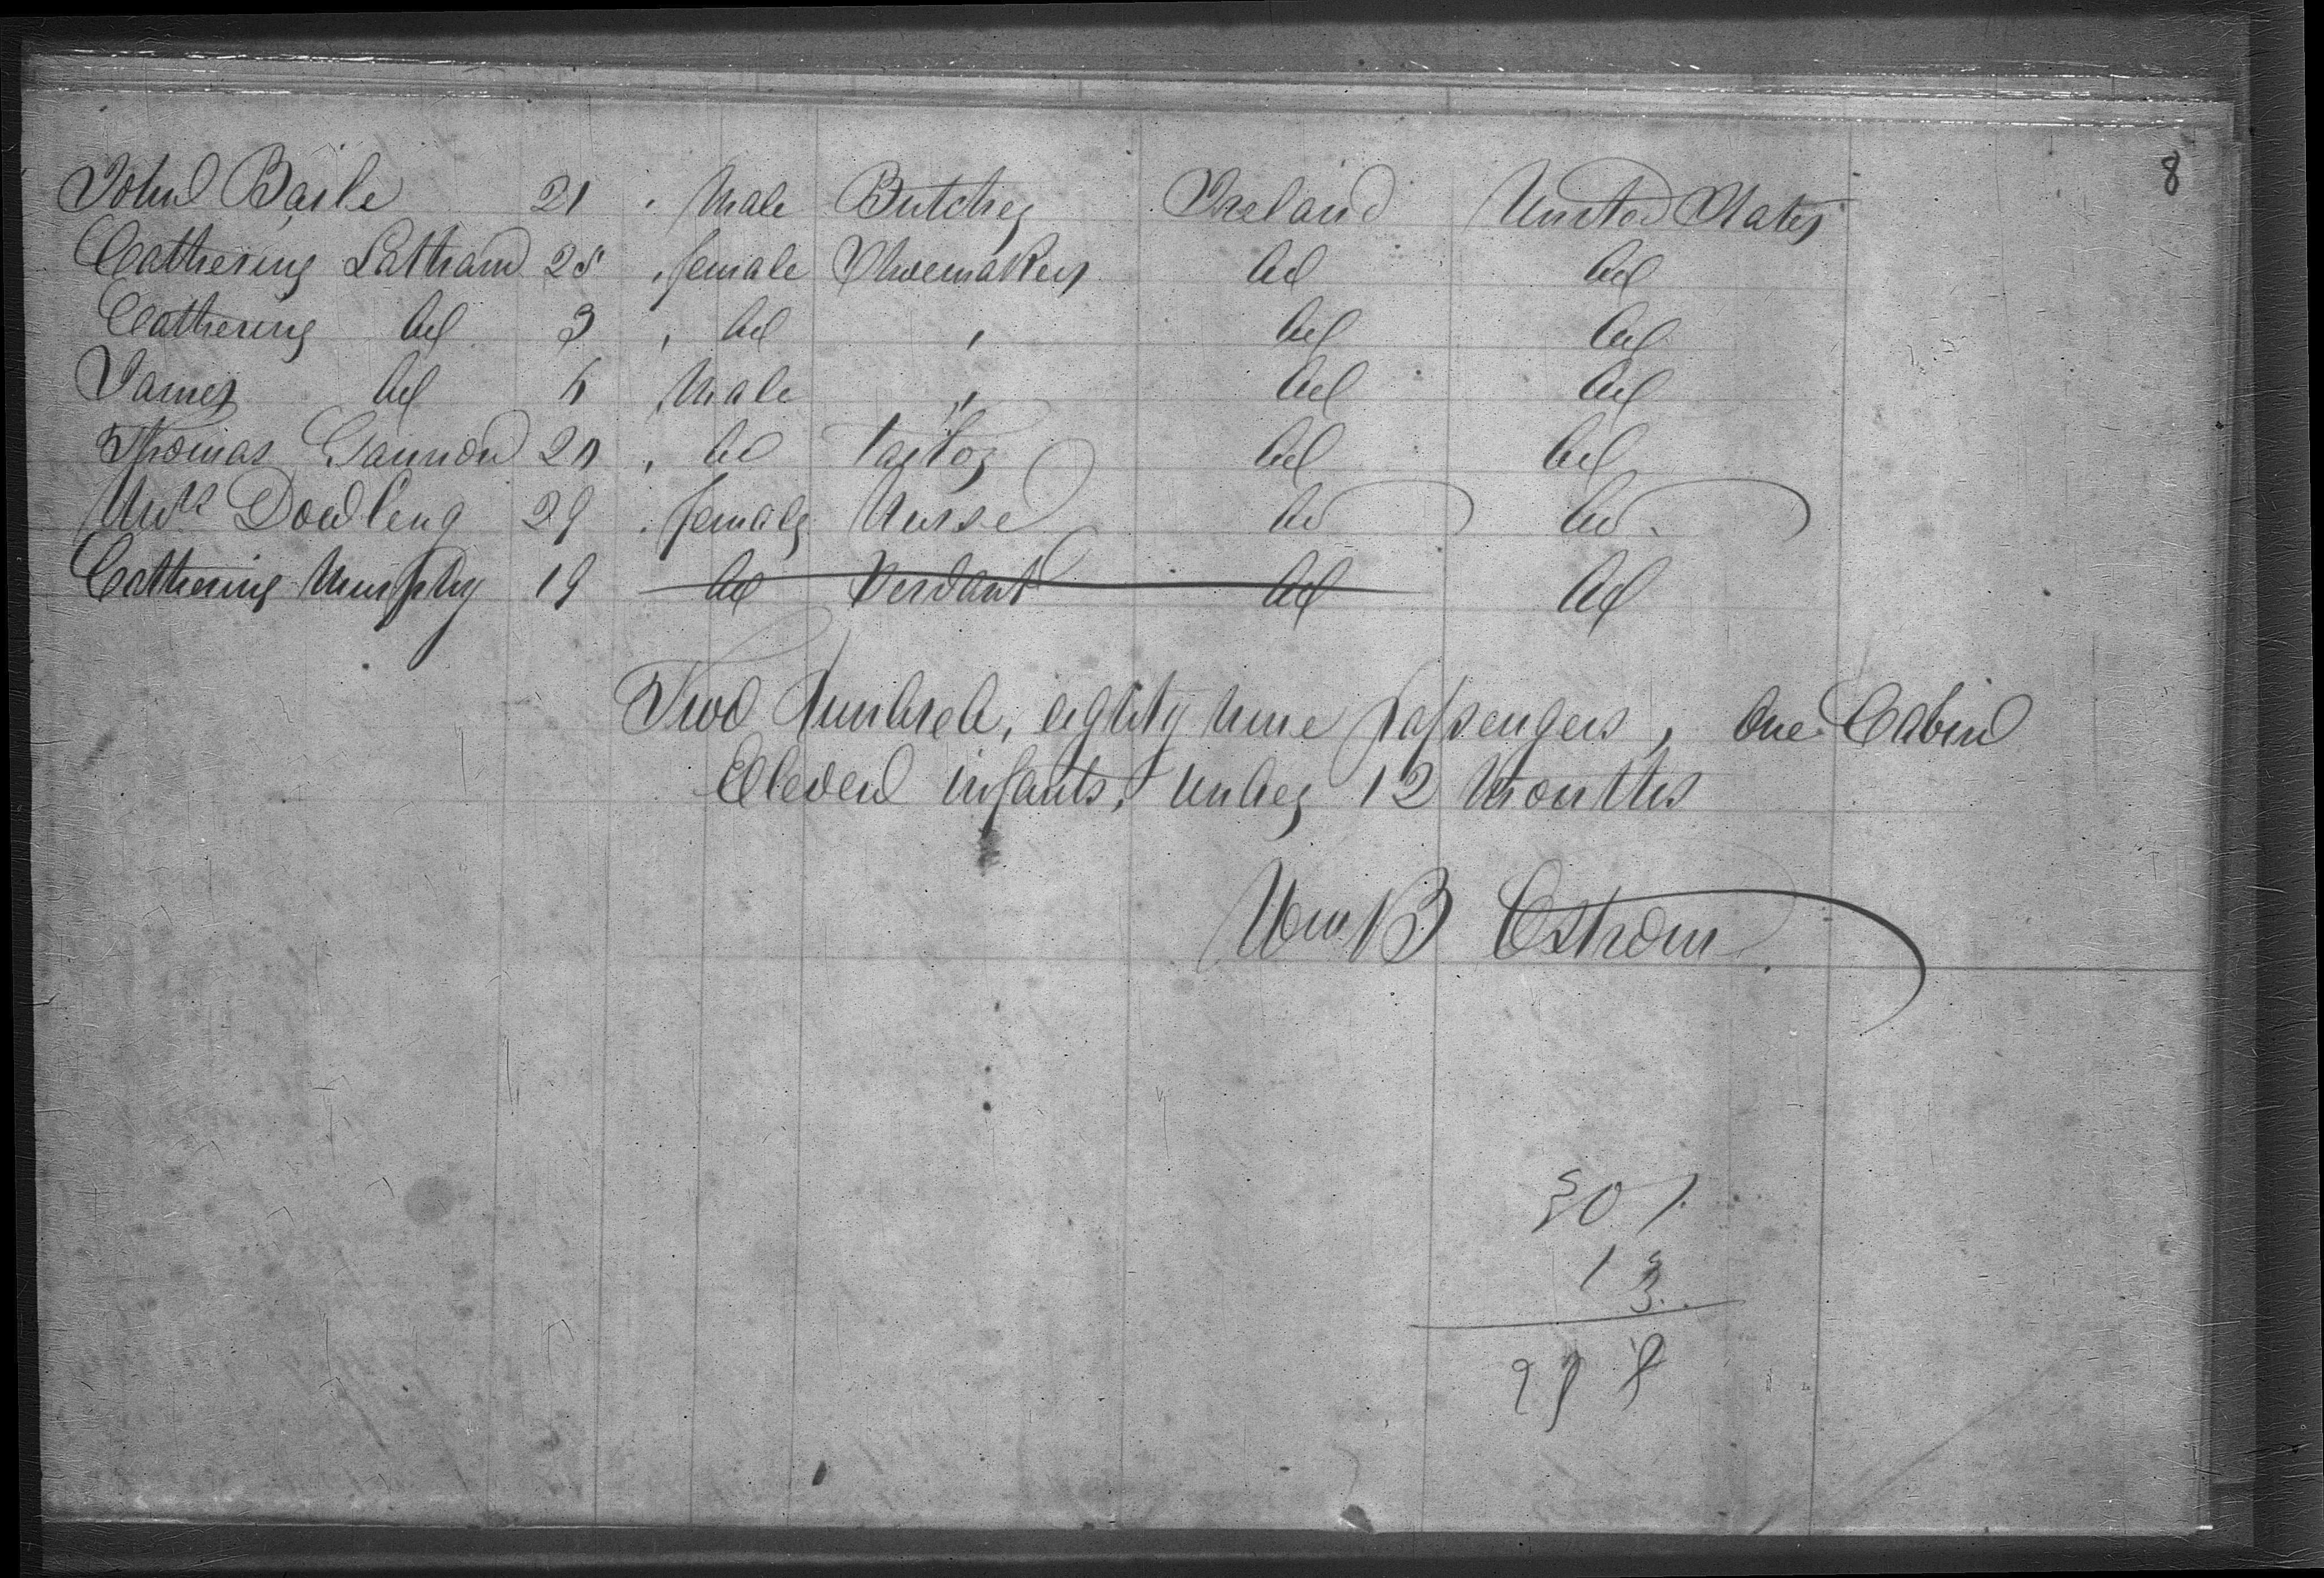 8
John Baile 21 Male Butcher Ireland United States
Catherine Latham 25 female Shoemaker do do
Catherine do 3 do " do do
James do 6 Male " do do
Thomas Gannon 20 do Tailor do do
Mrs Dowling 29 female Nurse do do
Catherine Murphy 19 do Servant do do
Two hundred, eighty nine passengers, One Cabin
Eleven infants, under 12 Months
Wm B Ostrom
301
13
288